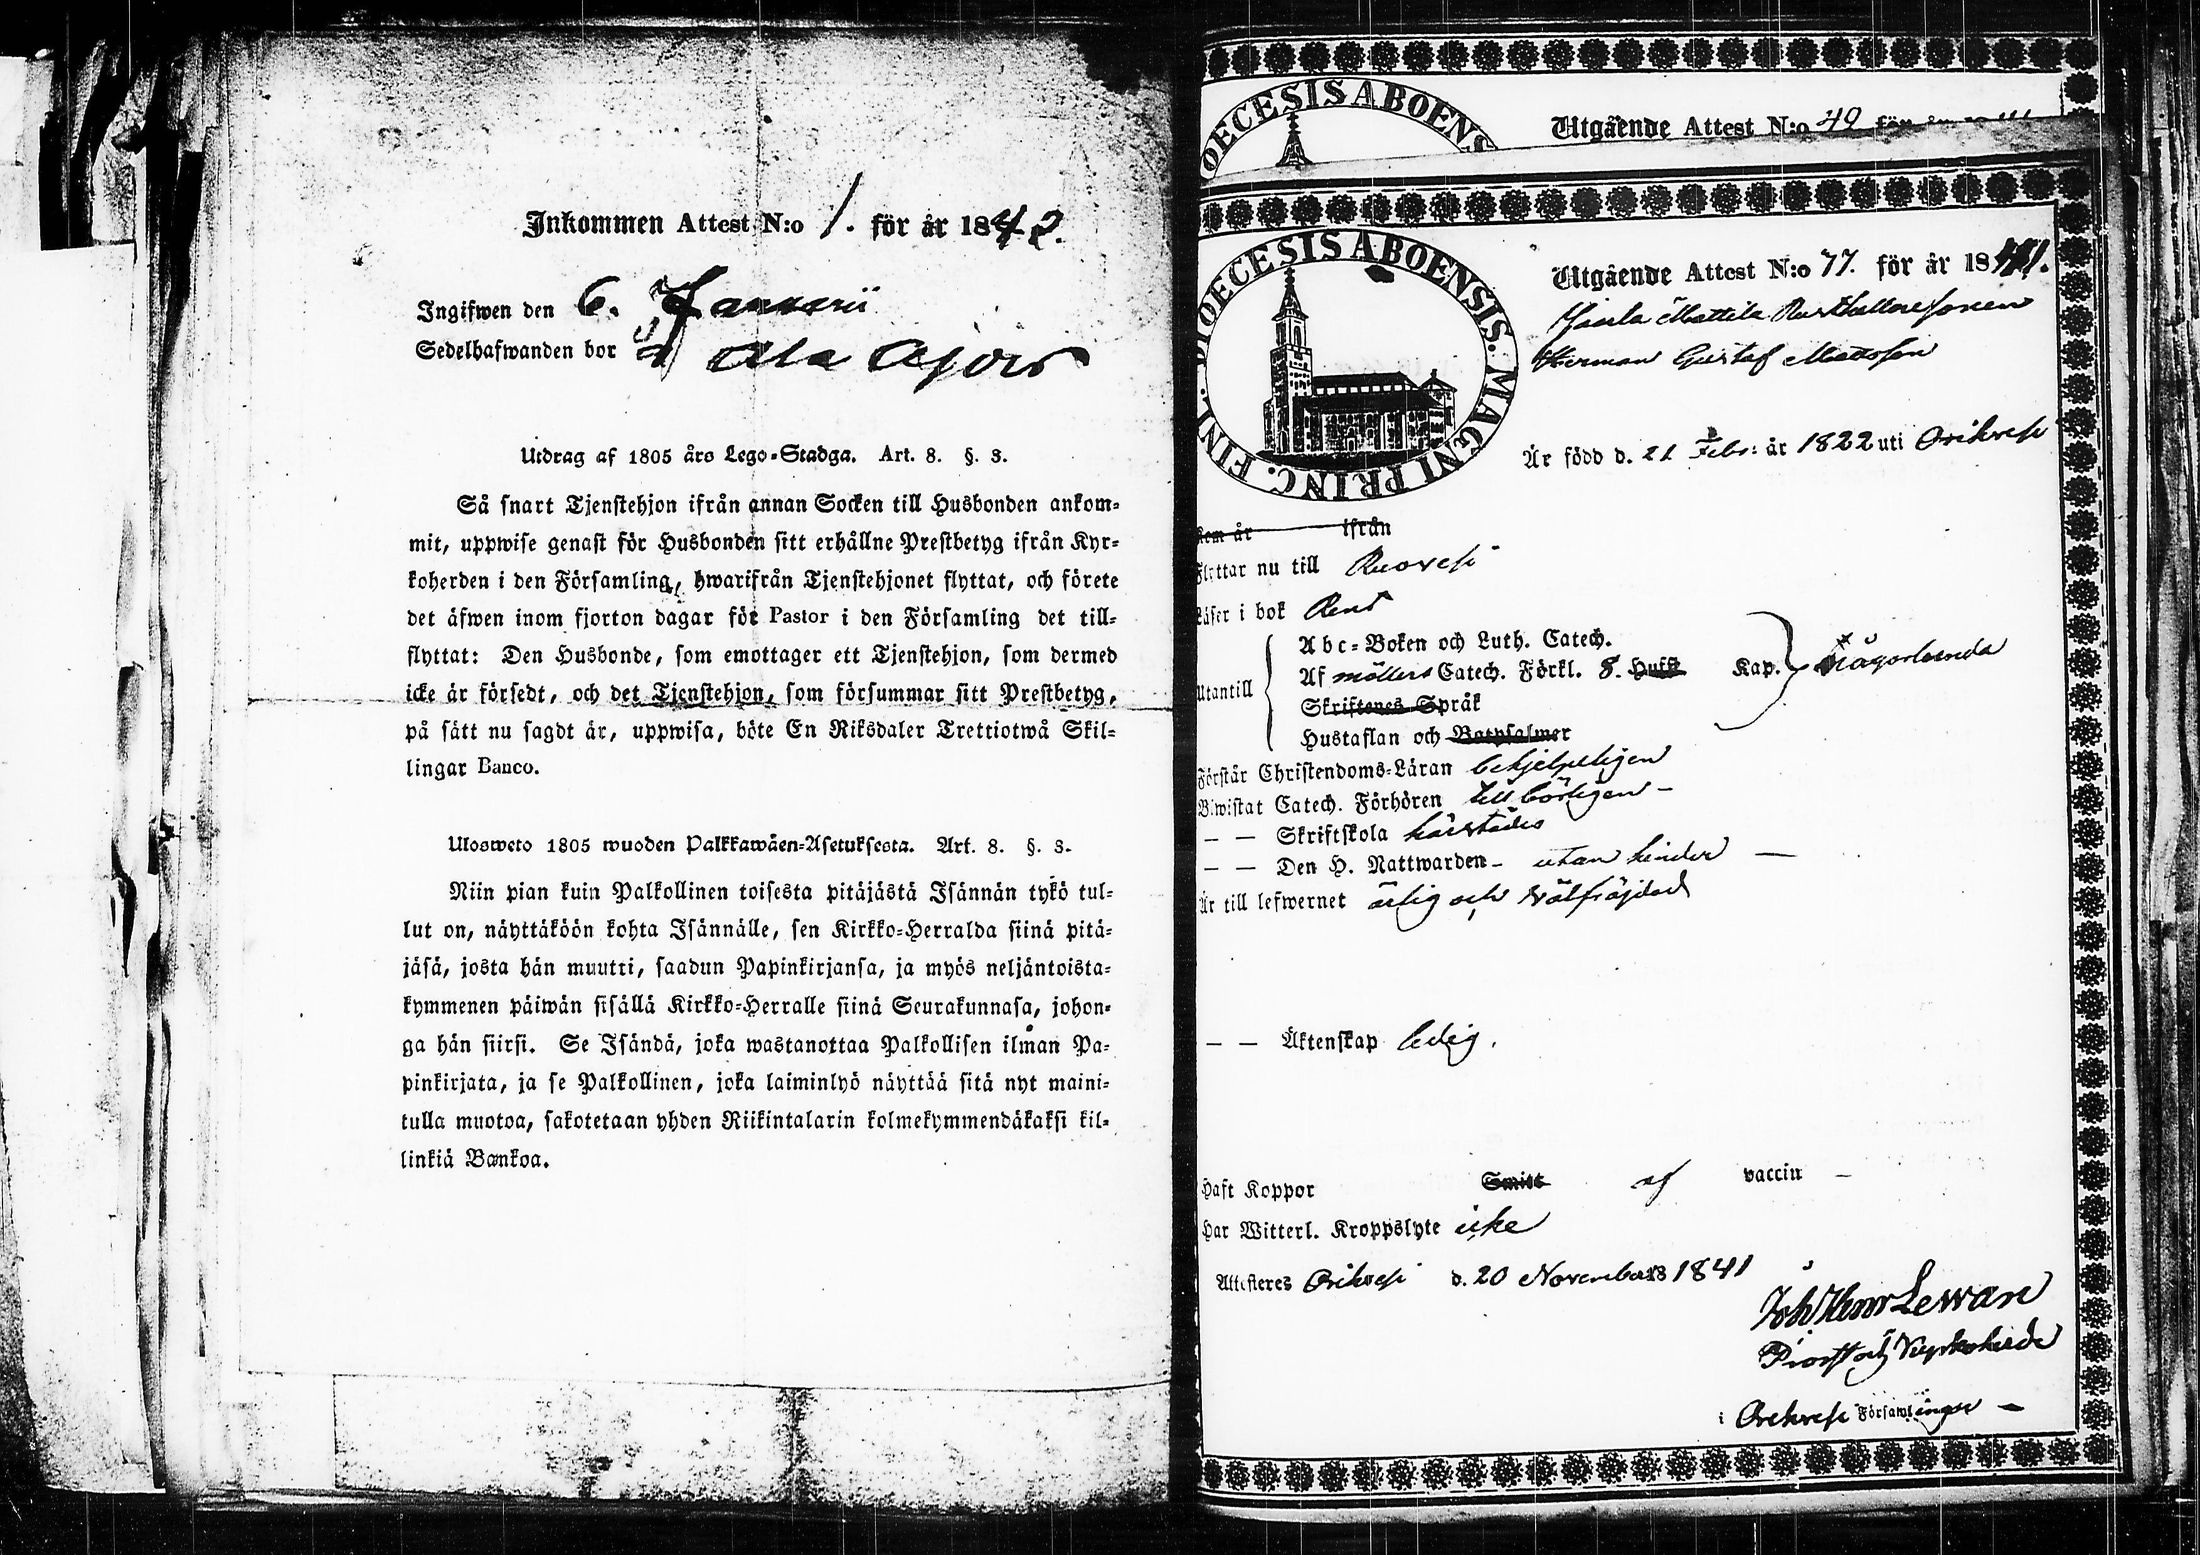 Inkommen Attest N:o 1. för år 1842.
Ingifwen den 6. Januarii
Sedelhafwanden bor å Ala Ajois
Utdrag af 1805 års Lego-Stadga. Art. 8. §. 3.
Så snart Tjenstehjon ifrån annan Socken till Husbonden ankom-
mit, uppwise genast för Husbonden sitt erhållne Prestbetyg ifrån Kyr-
koherden i den Församling, hwarifrån Tjenstehjonet flyttat, och förete
det äfwen inom fjorton dagar för Pastor i den Församling det till-
flyttat: Den Husbonde, som emottager ett Tjenstehjon, som dermed
icke är försedt, och det Tjenstehjon, som försummar sitt Prestbetyg,
på sätt nu sagdt är, uppwisa, böte En Riksdaler Trettiotwå Skil-
lingar Banco.
Ulosweto 1805 wuoden Palkkawäen-Asetuksesta. Art. 8. §. 3.
Niin pian kuin Palkollinen toisesta pitäjästä Isännän tykö tul-
lut on, näyttäköön kohta Isännälle, sen Kirkko-Herralda siinä pitä-
jäsä, josta hän muutti, saadun Papinkirjansa, ja myös neljäntoista-
kymmenen päiwän sisällä Kirkko-Herralle siinä Seurakunnasa, johon-
ga hän siirsi. Se Isändä, joka wastanottaa Palkollisen ilman Pa-
pinkirjata, ja se Palkollinen, joka laiminlyö näyttää sitä nyt maini-
tulla muotoa, sakotetaan yhden Riikintalarin kolmekymmendäkaksi kil-
linkiä Bankoa.
DIOECESIS ABOENS
Utgående Attest N:o 49 för år 1841
DIOECESIS ABOENSIS. MAGNI PRINC. FINL.
Utgående Attest N:o 77. för år 1841.
Mattila Rusthållaresonen
Herman Gustaf Mattsson
Är född d. 21 Febr: år 1822 uti Orihvesi
Kom år ifrån
Flyttar nu till Ruovesi
Läser i bok Rent
Utantill
Abc-Boken och Luth. Catech.
Af Möllers Catech. Förkl. 8. Hufst Kap.
Någorlunda
Skriftenes Språk
Hustaflan och Botpsalmer
Förstår Christendoms-Läran behjelpeligen
Biwistat Catech. Förhören tillbörligen –
— — Skriftskola härstädes
— — Den H. Nattwarden – utan hinder —
Är till lefwernet ärlig och wälfräjdad
— — Äktenskap ledig.
Haft Koppor Smitt af vaccin –
Har Witterl. Kroppslyte icke
Attesteres Orihvesi d. 20 November 18 1841
Joh Henr Lewan
Prost och Kyrkoherde
i Orihvesi Församlingar –